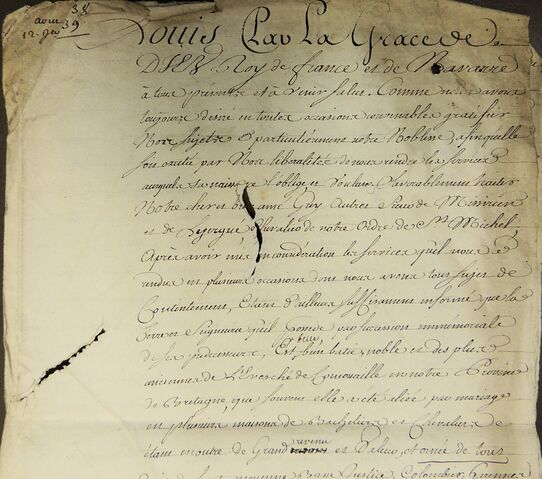 38
39
Louis Par La Grace de
DIEV Roy de france et de Navarre
à tous presents et à venir salut. Comme nous avons
toujours desiré en toutes occasions convenables gratifier
Nos sujets & particulierement notre Noblesse afin quelle
soit par Nos liberalités de nous rendre les services
naissance l'oblige, et Voulans favorablement traiter
Notre cher et bien amé Guy Autret Sieur de Missirien
et de Lezergue Chevalier de notre Ordre de St. Michel,
Après avoir mis en considération les services quil nous a
rendus en plusieurs occasions dont nous avons tous sujets de
Contentement, Etant d'ailleurs suffisament informé que la
Terre et Seigneurie quil possede par succession immémoriale
de ses predecesseurs, Est belle bien batie, noble et des plus
anciennes de L'Evesché de Cornouaille en notre Province
de Bretagne que souvent elle a esté aliée par mariage
en plusieurs maisons de Bacheliers et Chevaliers
étant en outre de Grand revenu et Valeur, et ornée de tous
moyenne Justice, Colombier, Garenne